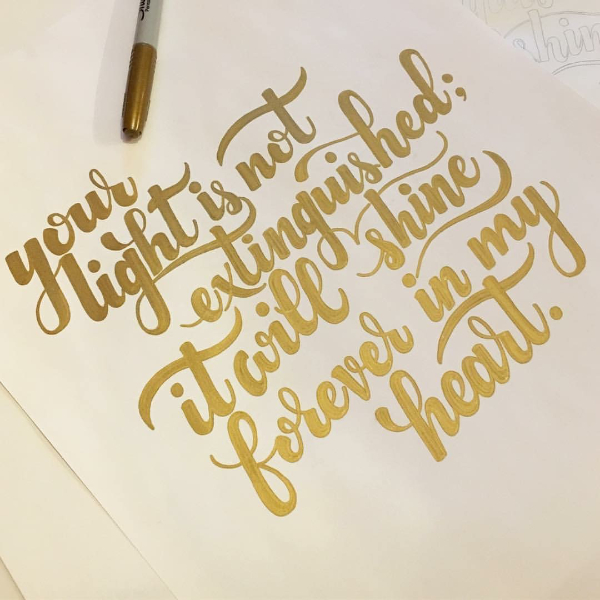 your
light is not
extinguished;
it will shine
forever in my
heart.